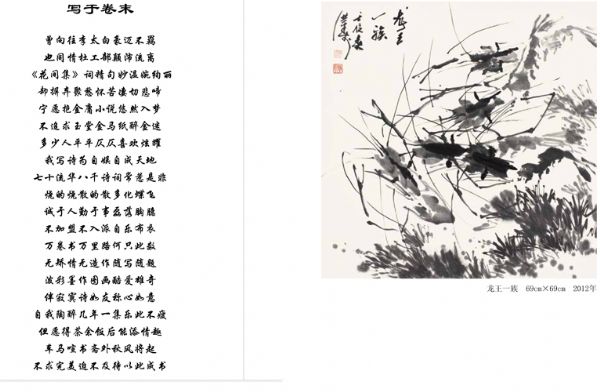 写于卷末
曾向往李太白豪迈不羁
也同情杜工部颠沛流离
《花间集》词精句妙温婉约丽
却摒弃聚愁怀苦凄切悲啼
宁愿抱金庸小说悠然入梦
不追求玉堂金马纸醉金迷
多少人平平仄仄喜欢炫耀
我写诗为自娱自成天地
七十流华八千诗词常惹是非
烧的烧散的散多化蝶飞
诚于人勤于事磊落胸臆
不加盟不入派自乐布衣
万卷书万里路何只此数
无矫情无造作随写随题
泼彩墨作图画酷爱雄奇
伴寂寞诗如友称心如意
自我陶醉几年一集乐此不疲
但愿得茶余饭后能添情趣
车马喧书斋外秋风将起
不求完美迫不及待以此成书
龙王
一族
壬辰夏
龙王一族 69cm×69cm 2012年